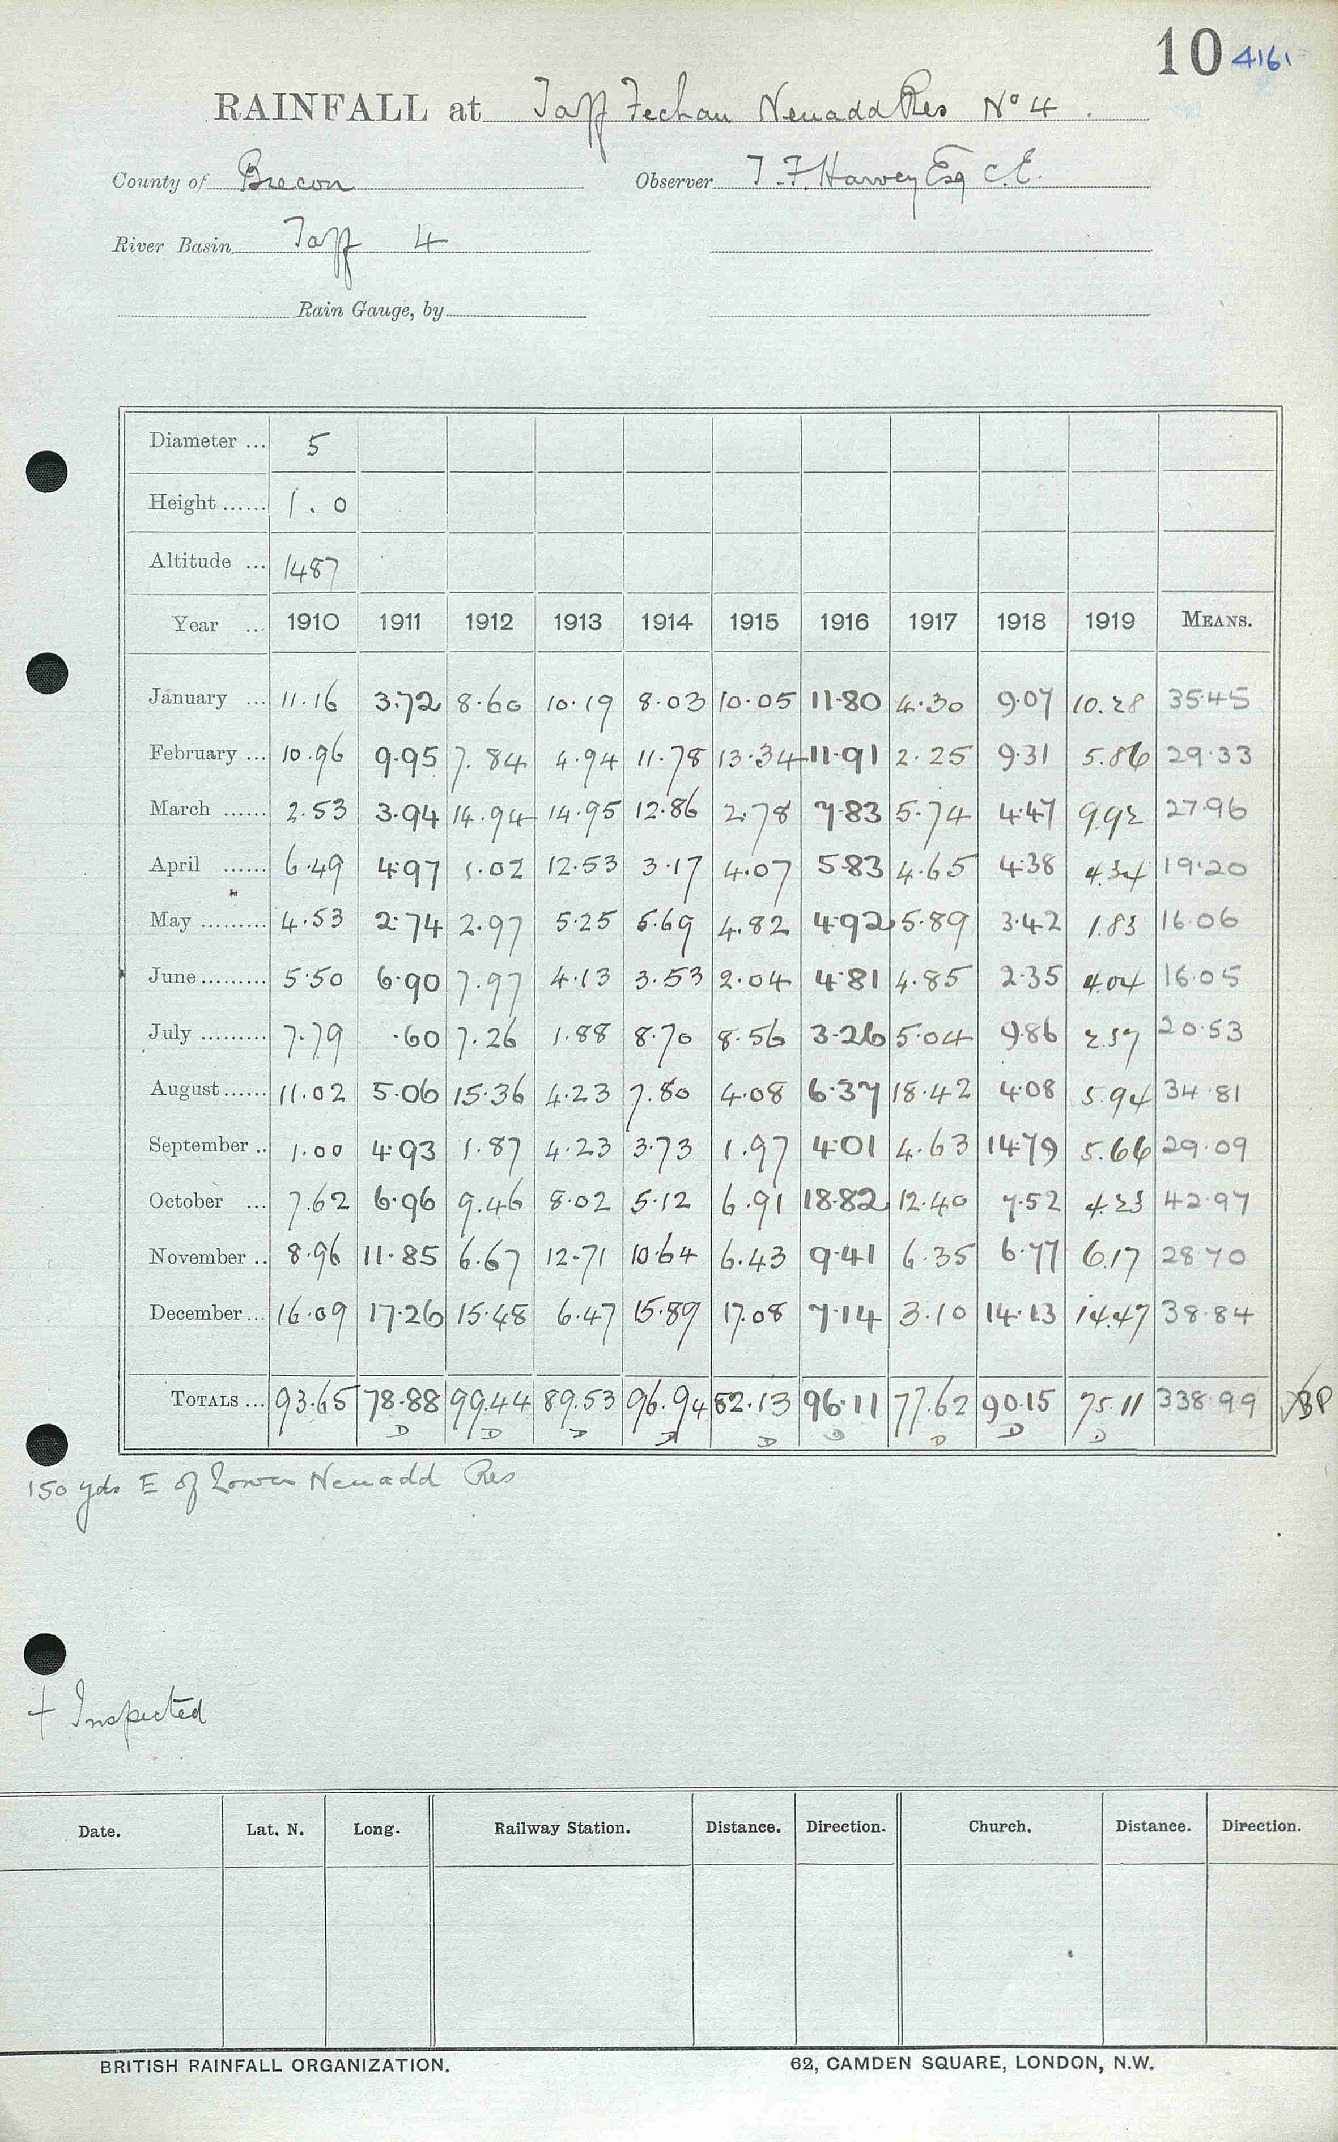 10 4161
RAINFALL at Taff Fechan Neuadd Res No 4.
County of Brecon Observer T. F. Harvey Esq C.E.
River Basin Taff 4
Rain Gauge, by
Diameter ... 5
Height ...... 1.0
Altitude ... 1487
Year ... 1910 1911 1912 1913 1914 1915 1916 1917 1918 1919 MEANS.
January ... 11.16 3.72 8.60 10.19 8.03 10.05 11.80 4.30 9.07 10.28 35.45
February ... 10.96 9.95 7.84 4.94 11.78 13.34 11.91 2.25 9.31 5.86 29.33
March ...... 2.53 3.94 14.94 14.95 12.86 2.78 7.83 5.74 4.47 9.92 27.96
April ...... 6.49 4.97 1.02 12.53 3.17 4.07 5.83 4.65 4.38 4.34 19.20
May ......... 4.53 2.74 2.97 5.25 5.69 4.82 4.92 5.89 3.42 1.83 16.06
June ......... 5.50 6.90 7.97 4.13 3.53 2.04 4.81 4.85 2.35 4.04 16.05
July ......... 7.79 .60 7.26 1.88 8.70 8.56 3.26 5.04 9.86 2.37 20.53
August ...... 11.02 5.06 15.36 4.23 7.80 4.08 6.37 18.42 4.08 5.94 34.81
September .. 1.00 4.93 1.87 4.23 3.73 1.97 4.01 4.63 14.79 5.66 29.09
October ... 7.62 6.96 9.46 8.02 5.12 6.91 18.82 12.40 7.52 4.23 42.97
November .. 8.96 11.85 6.67 12.71 10.64 6.43 9.41 6.35 6.77 6.17 28.70
December ... 16.09 17.26 15.48 6.47 15.89 17.08 7.14 3.10 14.13 14.47 38.84
TOTALS ... 93.65 78.88 99.44 89.53 96.94 82.13 96.11 77.62 90.15 75.11 338.99 BP
D D D D D D D D D
150 yds E of Lower Neuadd Res
+ Inspected
Date. Lat. N. Long. Railway Station. Distance. Direction. Church. Distance. Direction.
BRITISH RAINFALL ORGANIZATION. 62, CAMDEN SQUARE, LONDON, N.W.